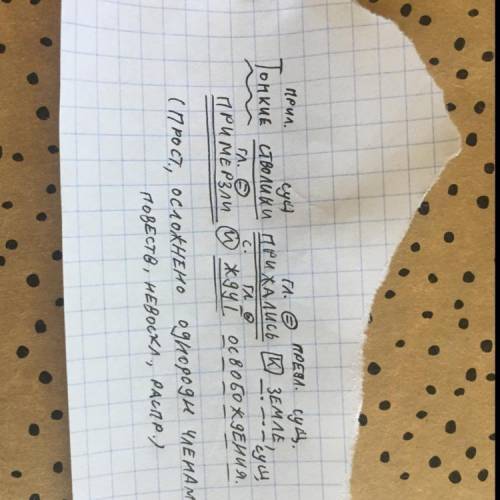 прил. сущ гл. = предл. сущ.
Тонкие стволики прижались к земле,
гл. = с. гл. = сущ
примерзли и ждут освобождения.
(прост., осложнено однородн членам
повеств, невоскл., распр.)